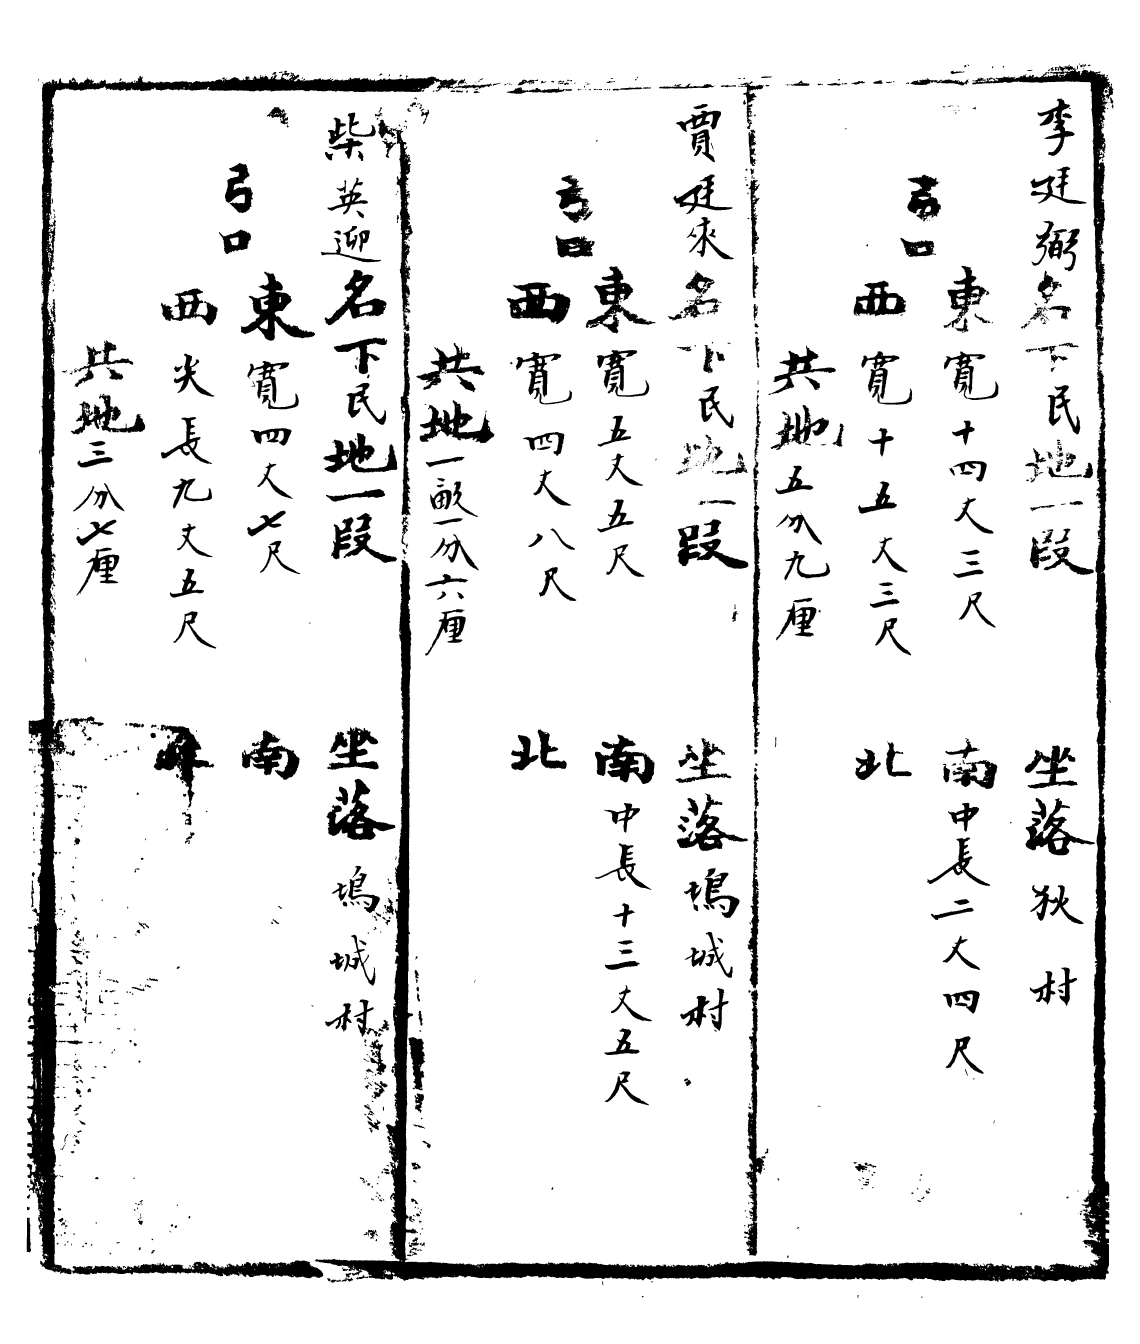 李廷弼名下民地一段 坐落狄村
弓口
東寬十四丈三尺 南中長二丈四尺
西寬十五丈三尺 北
共地五分九厘
賈廷來名下民地一段 坐落塢城村
弓口
東寬五丈五尺 南中長十三丈五尺
西寬四丈八尺 北
共地一畝一分六厘
柴英迎名下民地一段 坐落塢城村
弓口
東寬四丈七尺 南
西尖長九丈五尺 北
共地三分七厘